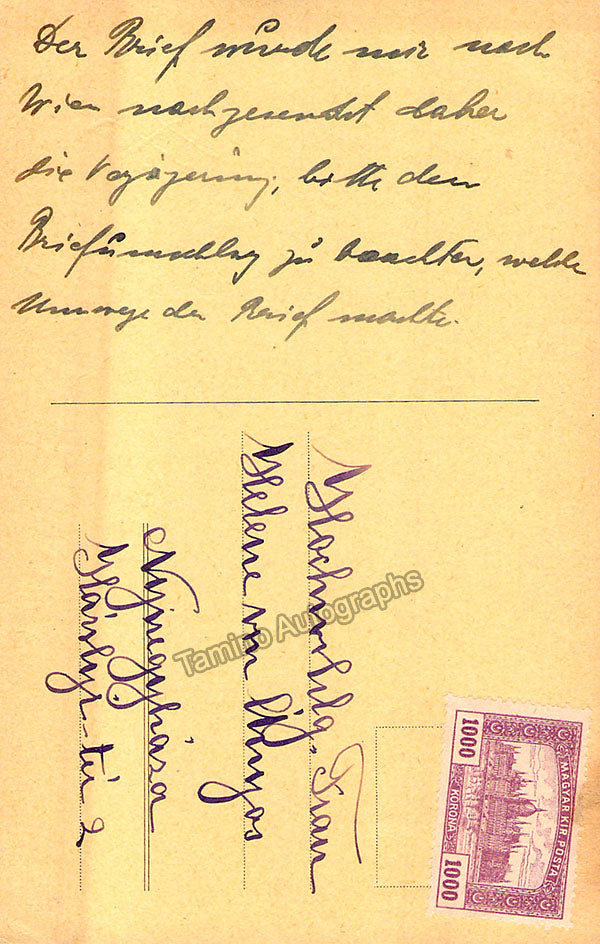 Der Brief wurde mir nach
Wien nachgesendet daher
die Verzögerung, bitte den
Briefumschlag zu beachten, welche
Umwege der Brief machte.
Hochwohlg. Frau
Helene von
Nyiregyháza
Károlyi-tér 2
MAGYAR KIR. POSTA
1000
KORONA
1000
Tamino Autographs